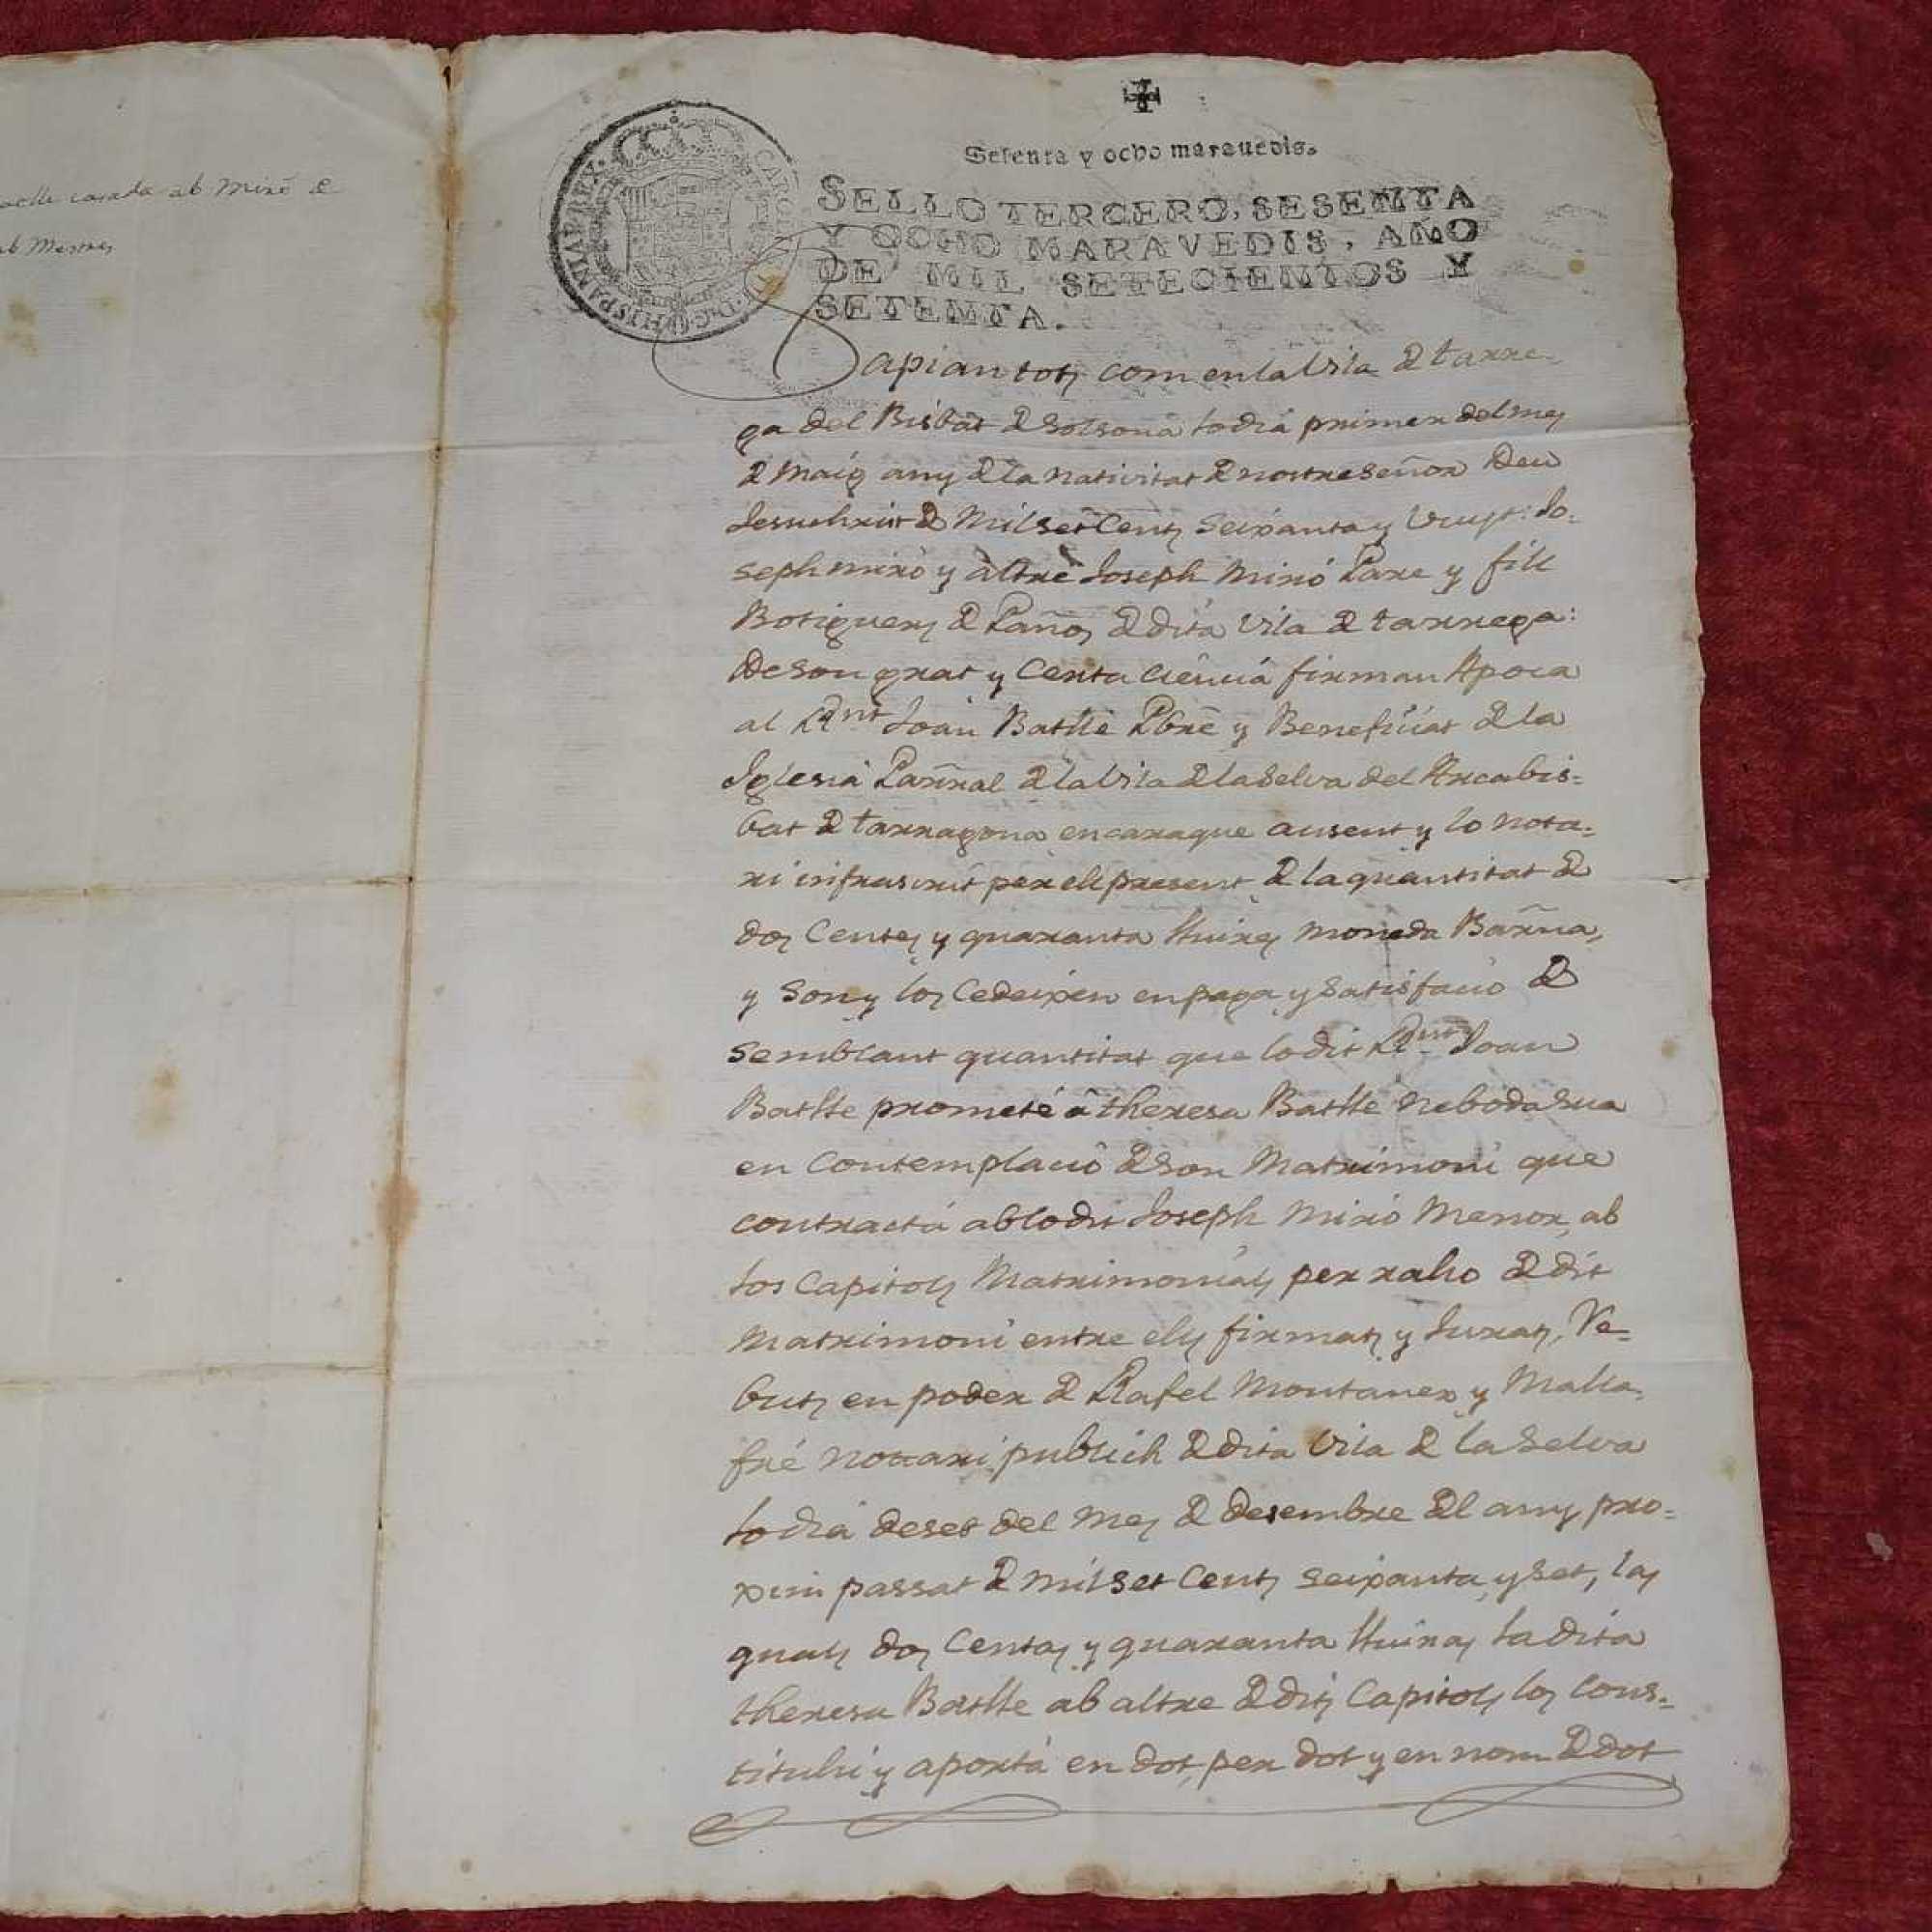 aelle casada ab Miró e
ab Mestres
Sesenta y ocho marauedis.
HISPANIAR REX. CARO D. G.
SELLO TERCERO, SESENTA
Y OCHO MARAVEDIS, AÑO
DE MIL SETECIENTOS Y
SETENTA.
Sapian tots com en la Vila de tarre-
ga del Bisbat de Solsona lo dia primer del mes
de Maig any de la nativitat de nostre Señor Deu
Jesuchrist de Mil set Cents Seixanta y Vuyt: Jo-
seph Miró y altre Joseph Miró Pare y fill
Botiguers de Paños de dita Vila de tarrega:
De son grat y Certa Ciencia firman Apoca
al Rnt Joan Batlle Pbre y Beneficiat de la
Iglesia Parral de la Vila de la Selva del Arcabis-
bat de tarragona encaraque ausent y lo nota-
ri infrascrit per ell present de la quantitat de
dos Centes y quaranta lliures moneda Barña,
y Son y los Cedeixen en paga y Satisfacio de
Semblant quantitat que lo dit Rnt Joan
Batlle prometé á theresa Batlle Neboda Sua
en Contemplació de Son Matrimoni que
contractá ab lo dit Joseph Miró Menor, ab
los Capitols Matrimonials per raho de dit
Matrimoni entre ells firmats y Jurats, Re-
buts en poder de Rafel Montaner y Malla-
fré notari publich de dita Vila de la Selva
lo dia deset del Mes de desembre del any pro-
xim passat de mil set Cents seixanta y set, las
quals dos Centas y quaranta lliuras la dita
theresa Batlle ab altre de dits Capitols los Cons-
tituhí y aportá en dot, per dot y en nom de dot